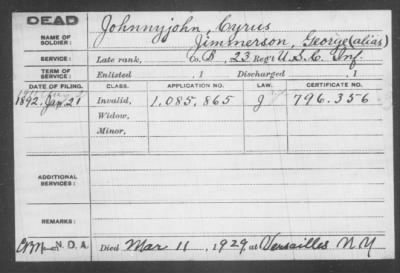 DEAD
NAME OF SOLDIER:
Johnnyjohn, Cyrus
Jimmerson, George (alias)
SERVICE: Late rank, Co. B, 23 Reg't U.S.C. Inf.
TERM OF SERVICE: Enlisted , 1 Discharged , 1
DATE OF FILING. CLASS. APPLICATION NO. LAW. CERTIFICATE NO.
1892. Jan 21 Invalid, 1.085,865 J 796.356
Widow,
Minor,
ADDITIONAL SERVICES:
REMARKS:
N.O.A. Died Mar 11, 1929, at Versailles N.Y